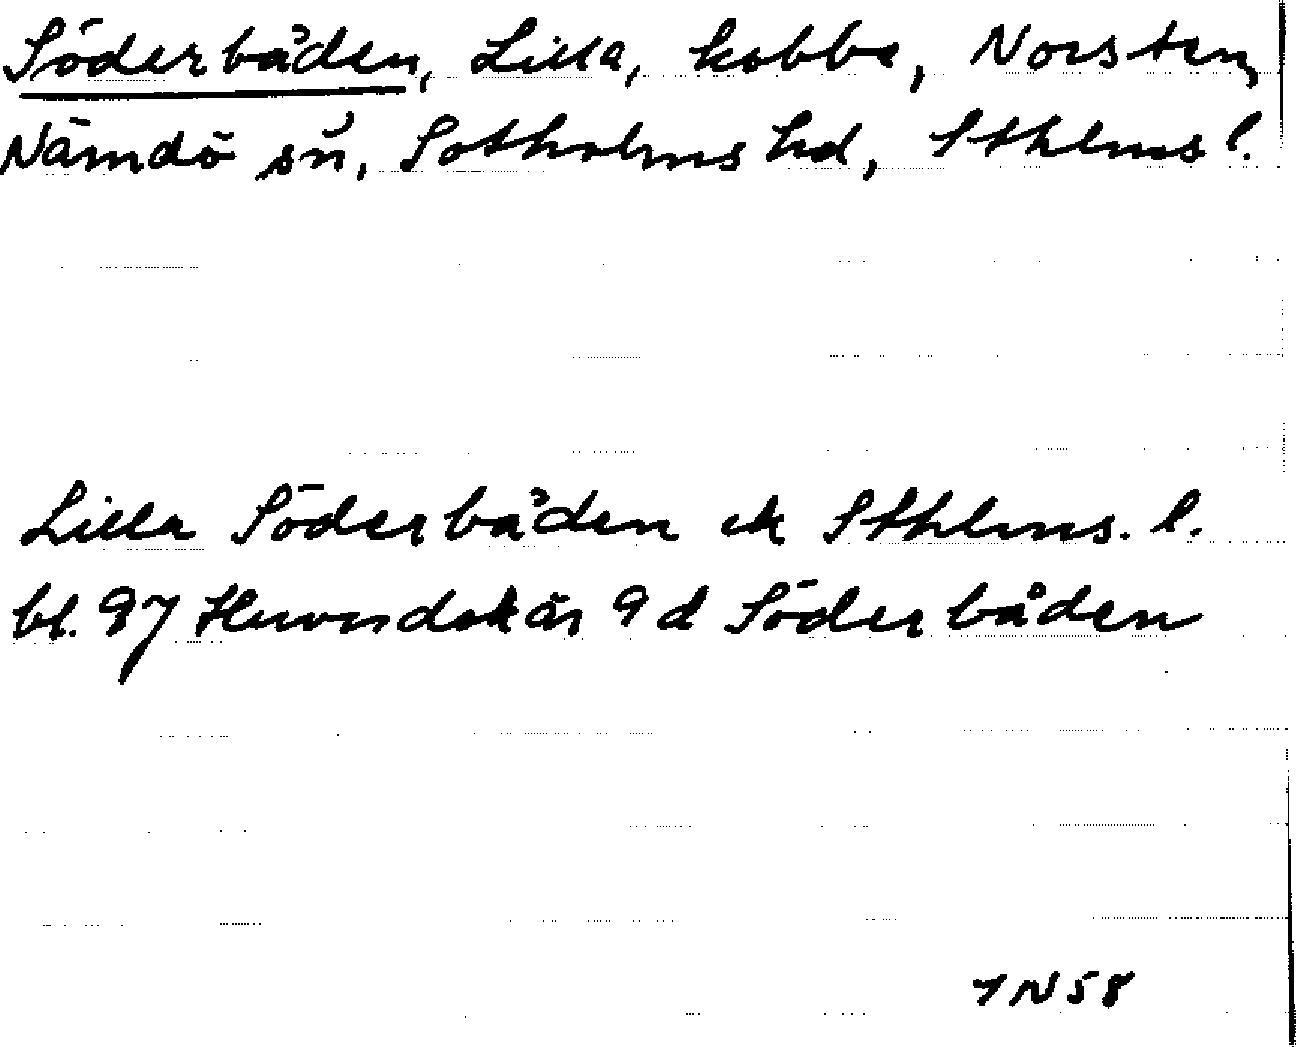 Söderbåden, Lilla, kobbe, Norsten,
Nämdö sn, Sotholms hd, Sthlms l.
Lilla Söderbåden ek Sthlms. l.
bl. 97 Huvudskär 9 d Söderbåden
7 N 58